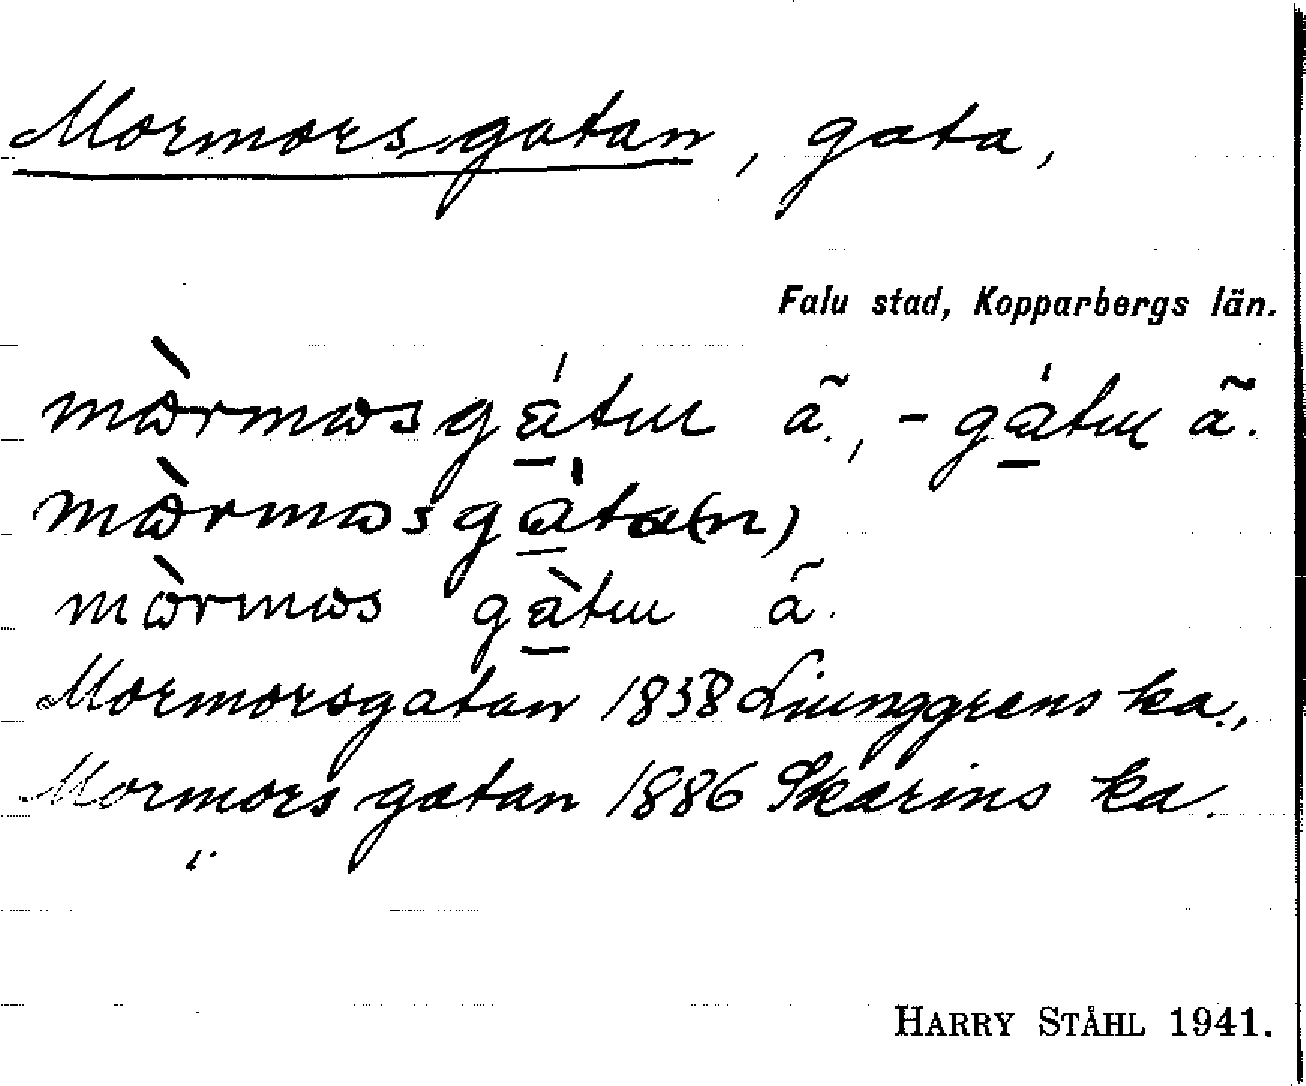 Mormorsgatan, gata,
Falu stad, Kopparbergs län.
mòrmosgátuu ã., -gátuu ã.
mòrmosgàta(n)
mòrmos gàtuu ã.
Mormorsgatan 1858 Liunggrens ka.,
Mormors gatan 1886 Skarins ka.
HARRY STÅHL 1941.